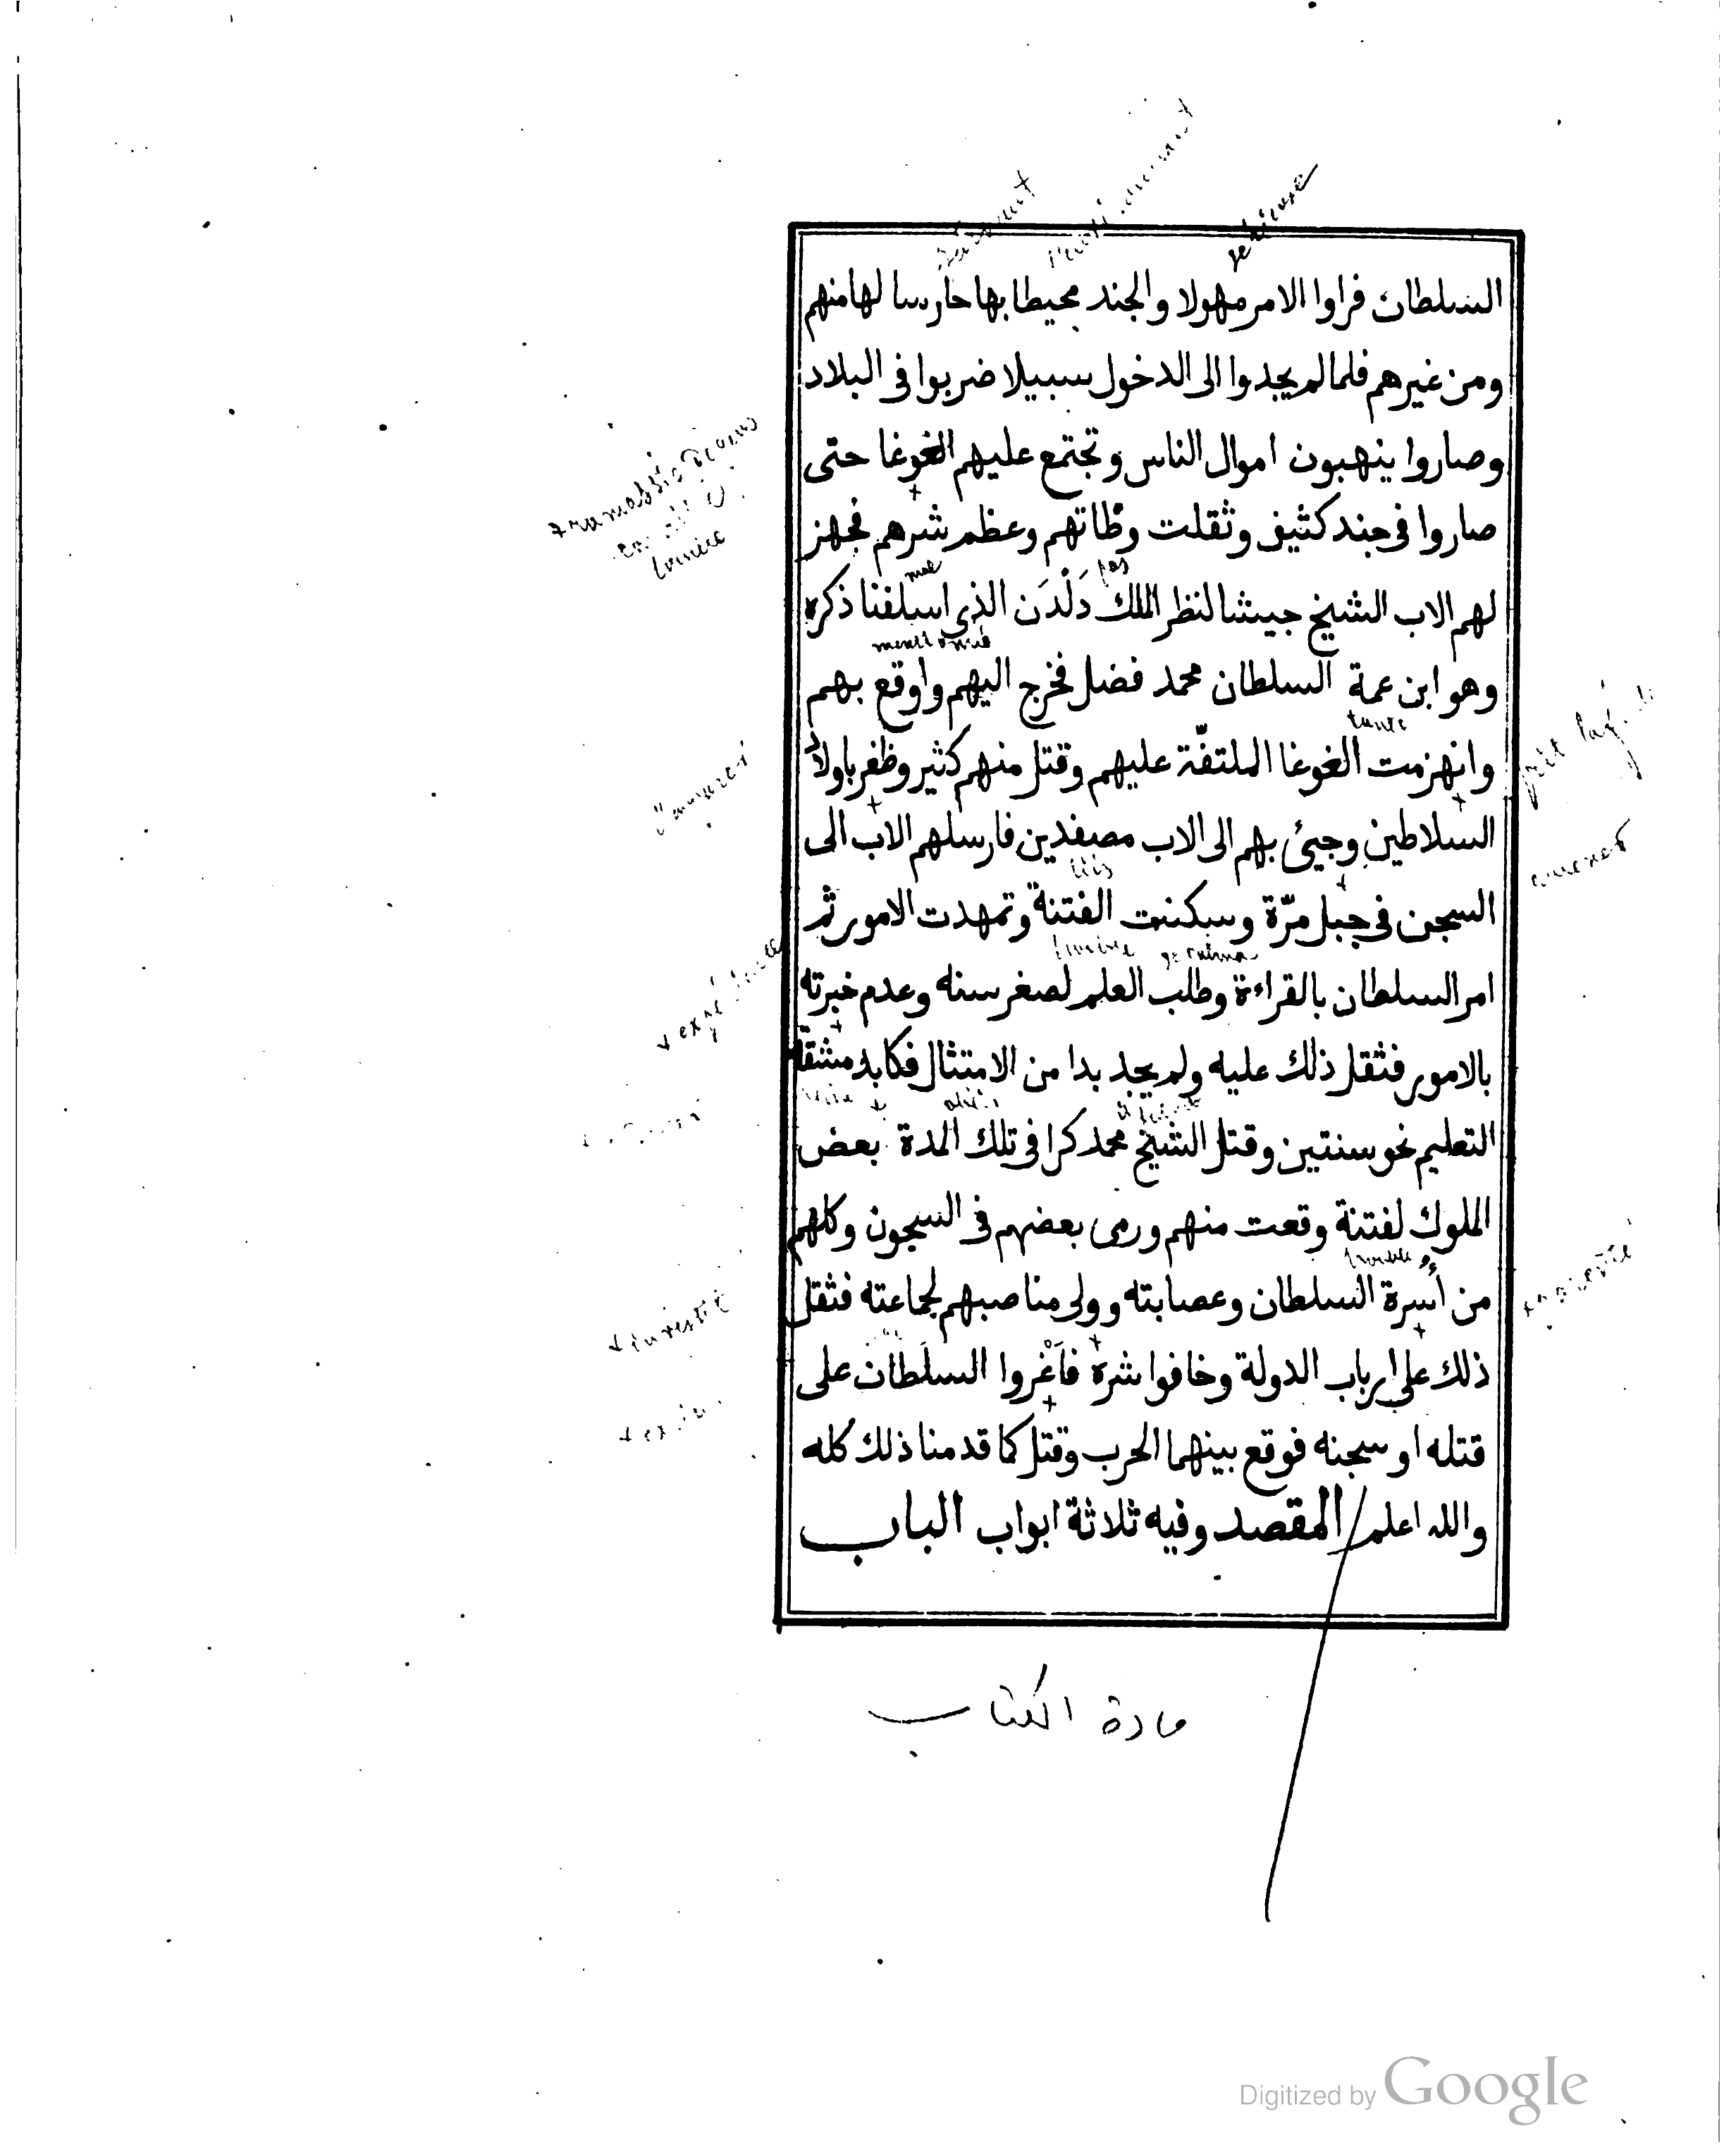 السلطان فراوا الامر مهولا والجند محيطا بها حارسا لها منهم
ومن غيرهم فلما لم يجدوا الى الدخول سبيلا ضربوا فى البلاد
وصاروا ينهبون اموال الناس وتجتمع عليهم الغوغا حتى
صاروا فى جند كثيف وثقلت وطاتهم وعظم شرهم فجهز
لهم الاب الشيخ جيشا لنظر الملك دَلْدَن الذى اسلفنا ذكره
وهو ابن عمة السلطان محمد فضل فخرج اليهم واوقع بهم
وانهزمت الغوغا الملتفّة عليهم وقتل منهم كثير وظفر باولاد
السلاطين وجيئ بهم الى الاب مصفدين فارسلهم الاب الى
السجن فى جبل مرّة وسكنت الفتنة وتمهدت الامور ثم
امر السلطان بالقراءة وطلب العلم لصغر سنه وعدم خبرته
بالامور فثقل ذلك عليه ولم يجد بدا من الامتثال فكابد مشقة
التعليم نحو سنتين وقتل الشيخ محمد كرا فى تلك المدة بعض
الملوك لفتنة وقعت منهم ورمى بعضهم فى السجون وكلهم
من أُسرة السلطان وعصابته وولى مناصبهم لجماعته فثقل
ذلك على ارباب الدولة وخافوا شره فاَغْروا السلطان على
قتله او سجنه فوقع بينهما الحرب وقتل كما قدمنا ذلك كله
والله اعلم / المقصد وفيه ثلاثة ابواب الباب
مادة الكتاب
Digitized by Google